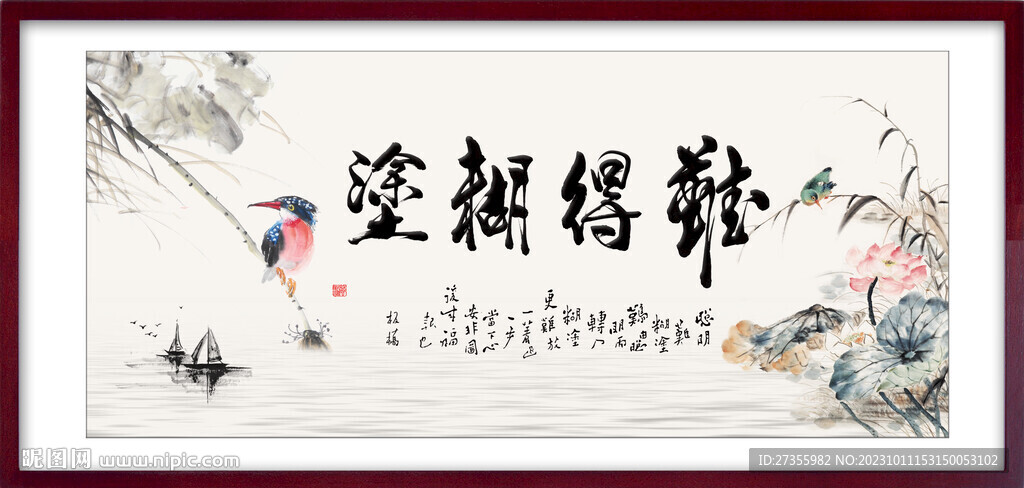 難得糊塗
聰明
難
糊塗
難由聰
明而
轉入
糊塗
更難放
一著退
一步
當下心
安非圖
後來福
報也
板橋
昵图网 www.nipic.com
ID:27355982 NO:20231011153150053102